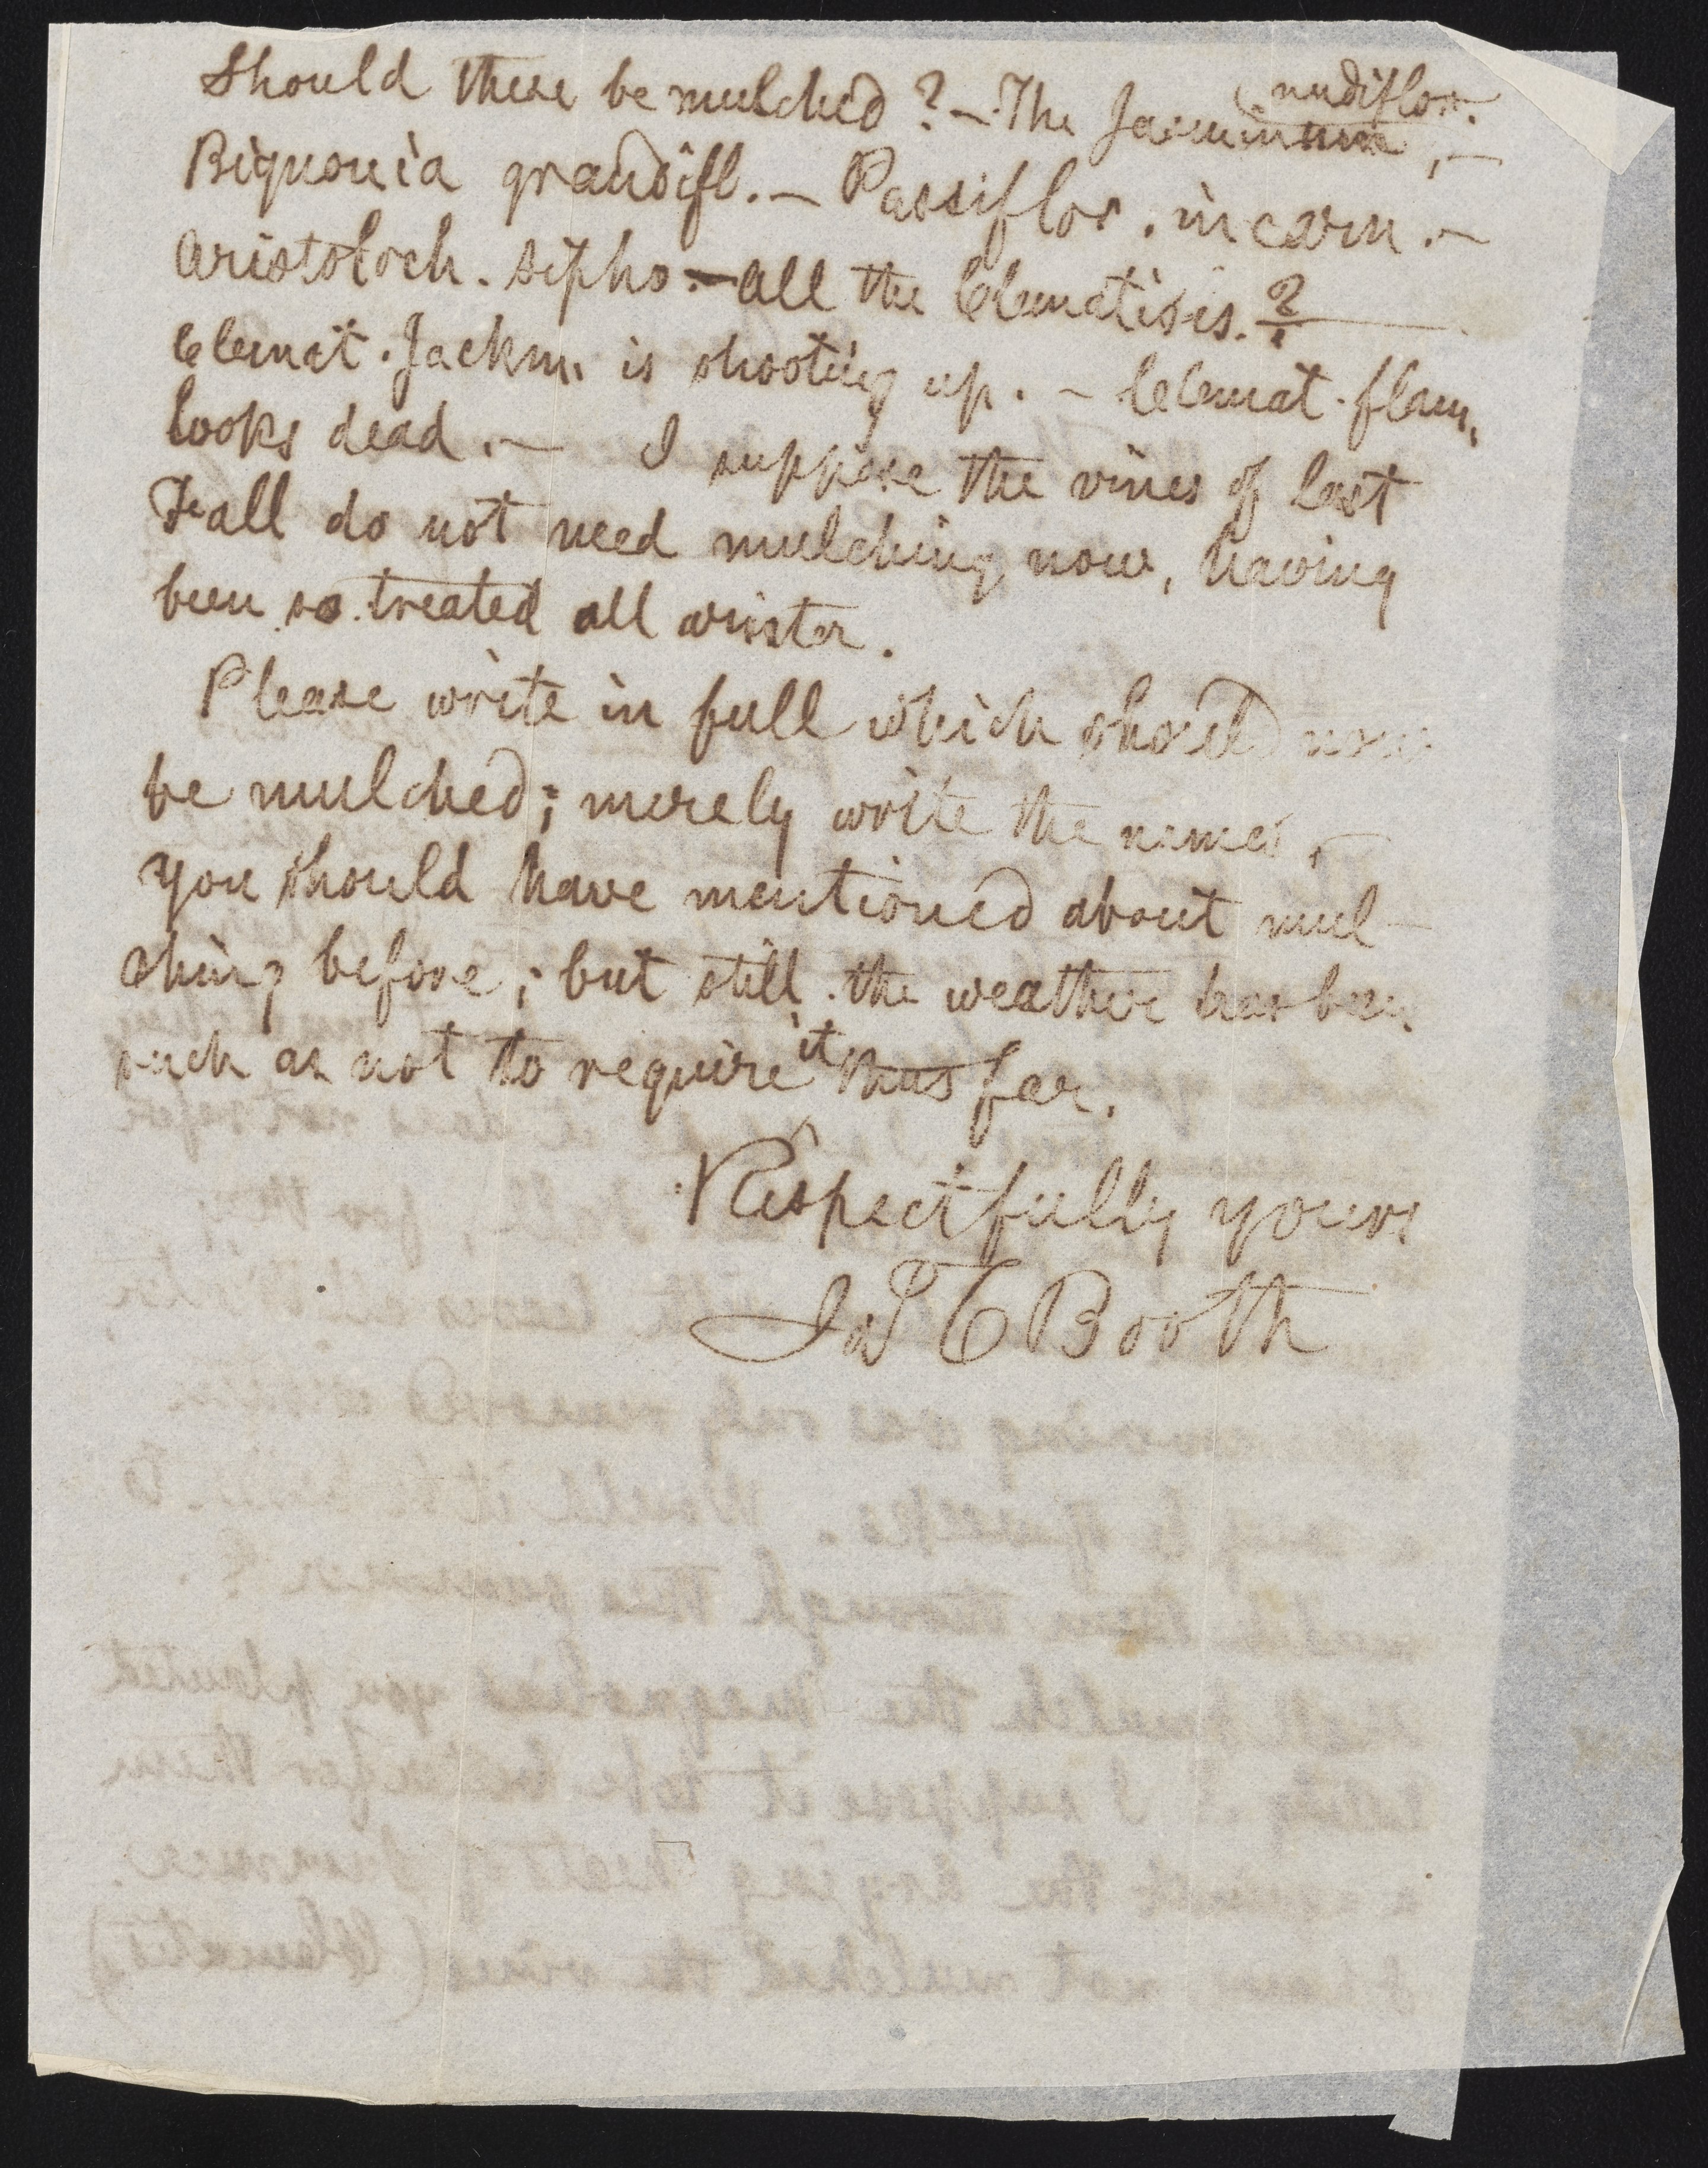 Should these be mulched? – The Jasminum nudiflor., –
Bignonia grandifl. – Passiflor. incarn. –
Aristoloch. sipho – all the Clematisis. ?
Clemat. Jackm. is shooting up. – Clemat. flam.
looks dead. – I suppose the vines of last
Fall do not need mulching now, having
been so treated all winter.
Please write in full which should now
be mulched; merely write the names, –
you should have mentioned about mul-
ching before; but still the weather has been
such as not to require it thus far.
Respectfully yours
Jas C Booth